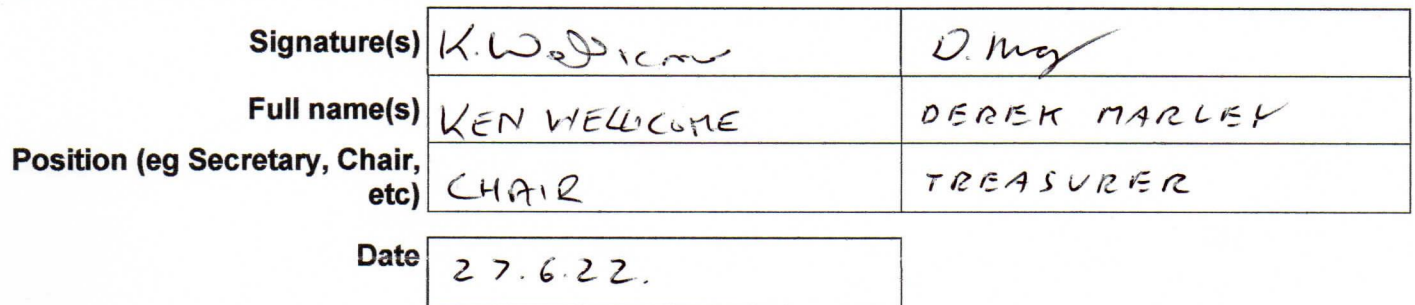 Signature(s) K. Wellicome D. May
Full name(s) KEN WELLICOME DEREK MARLEY
Position (eg Secretary, Chair,
etc) CHAIR TREASURER
Date 27.6.22.